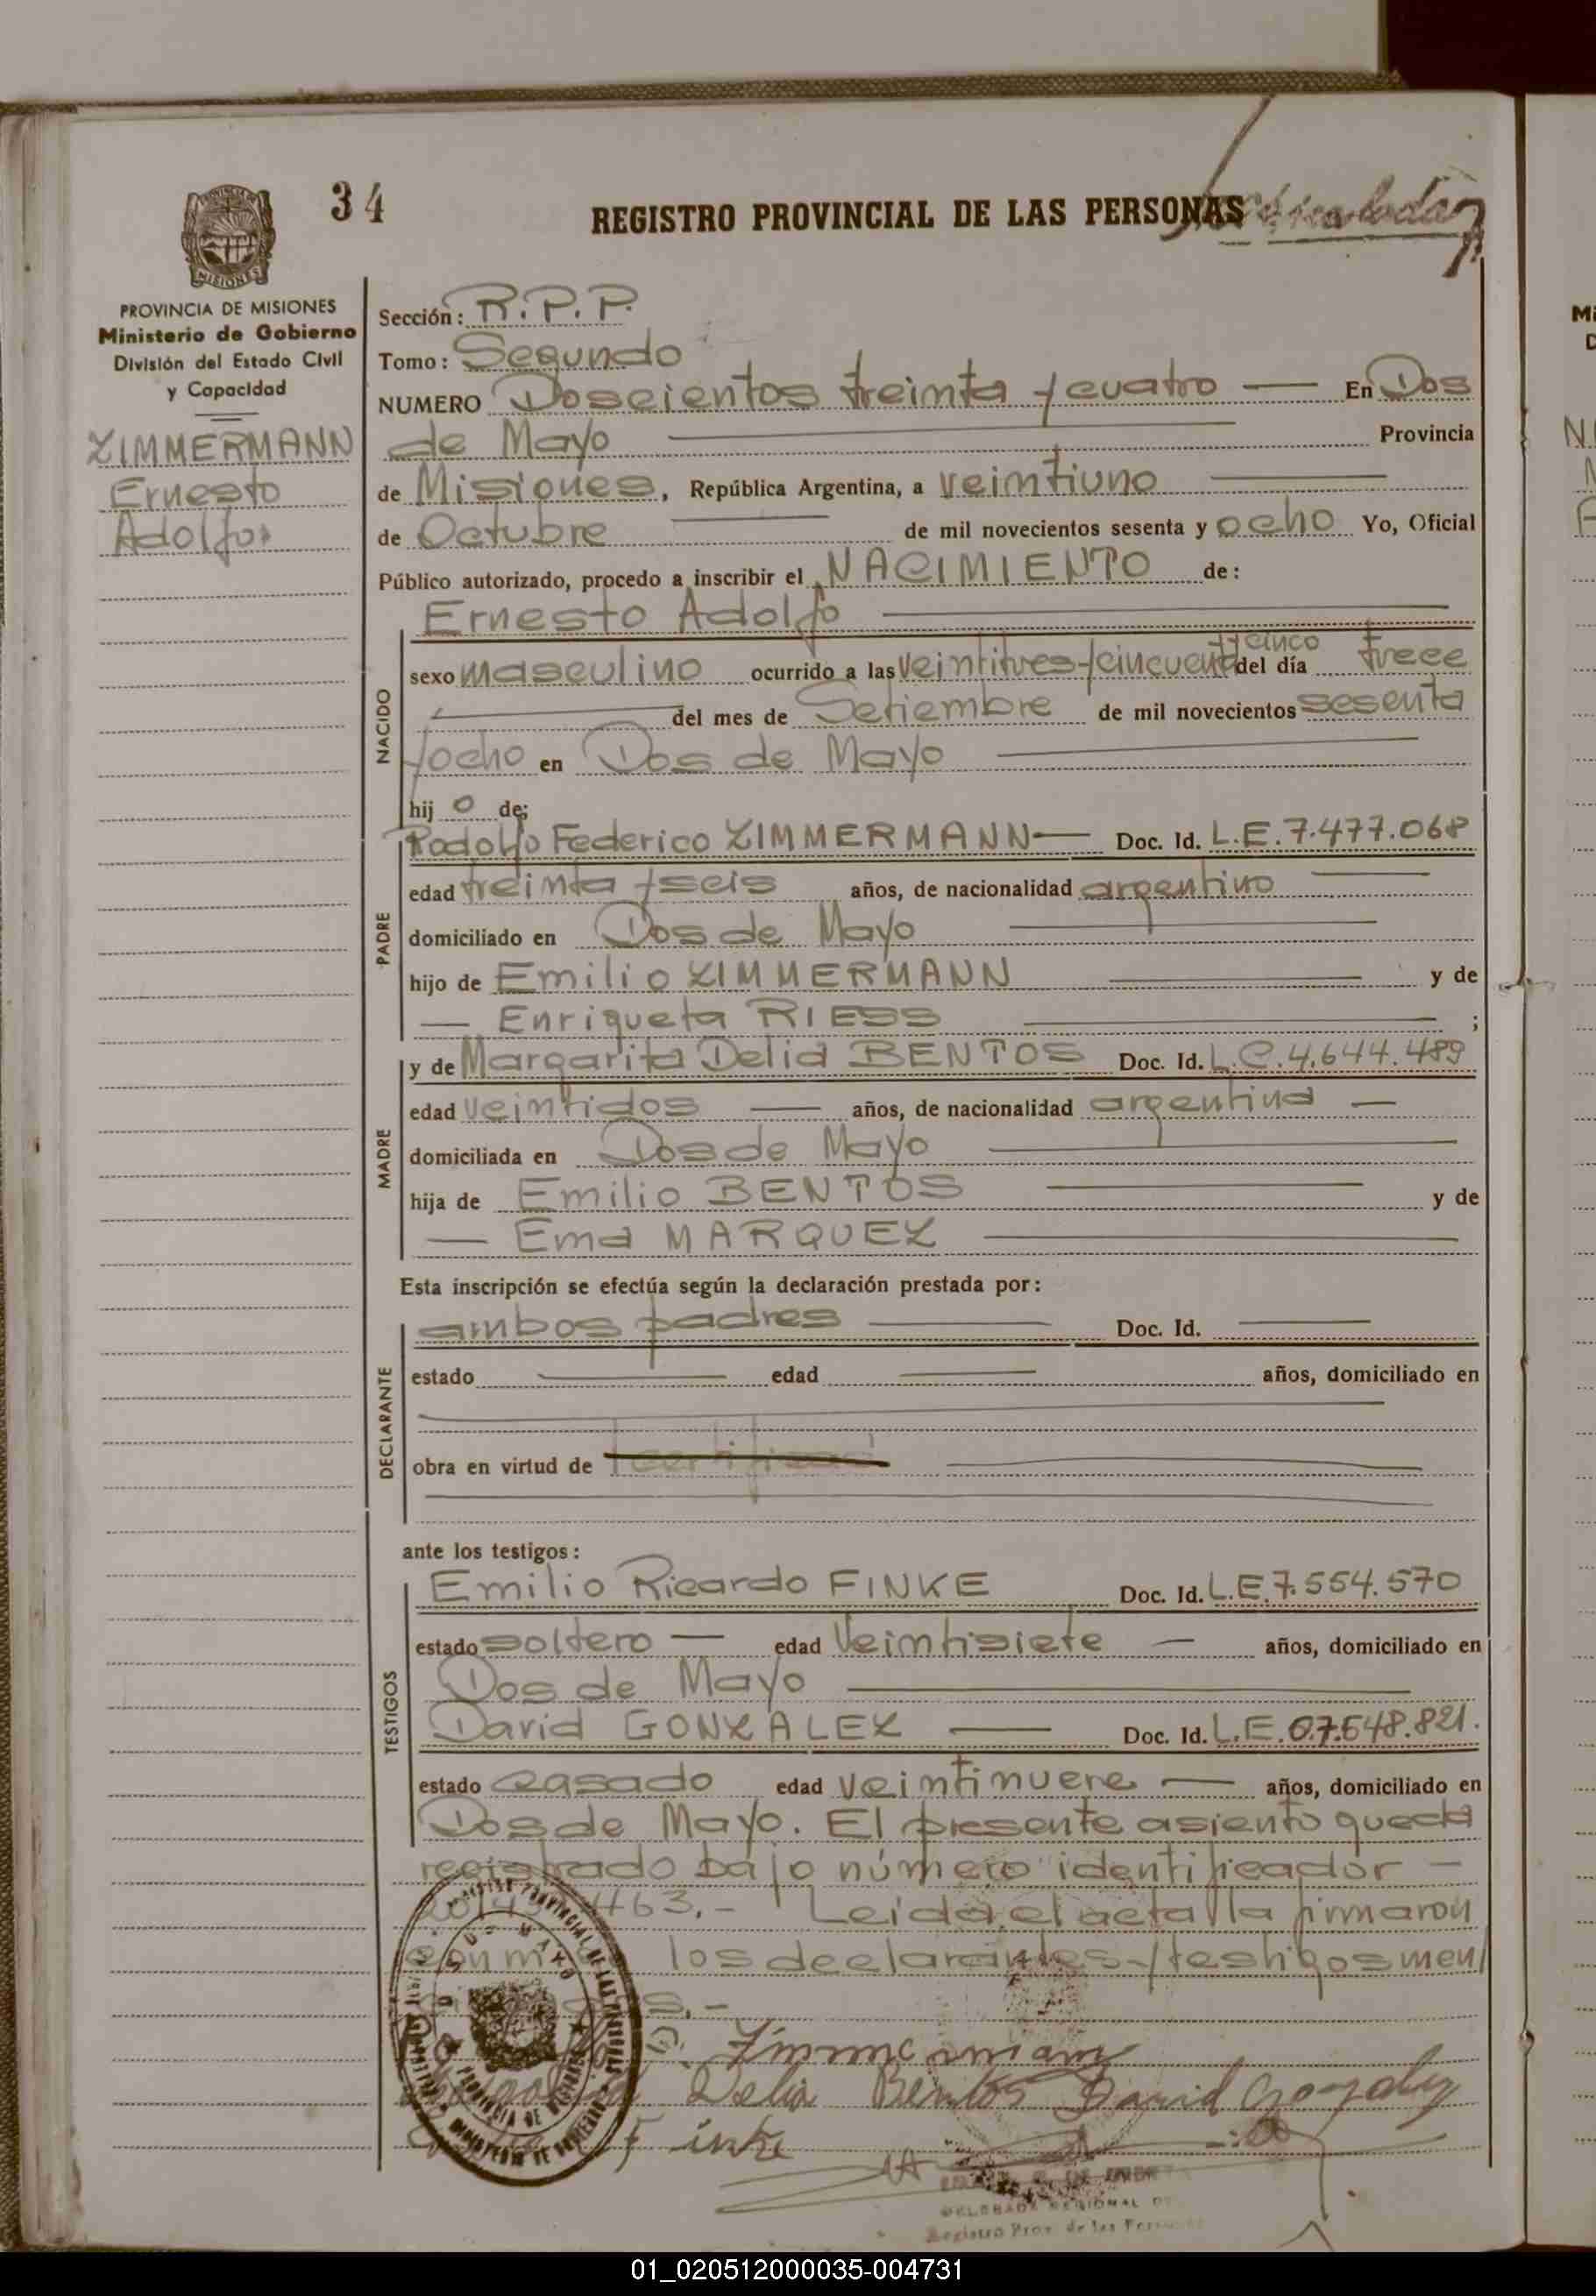 34
REGISTRO PROVINCIAL DE LAS PERSONAS
PROVINCIA DE MISIONES
Ministerio de Gobierno
División del Estado Civil
y Capacidad
ZIMMERMANN
Ernesto
Adolfo
Sección: R.P.P.
Tomo: Segundo
NUMERO Doscientos treinta y cuatro — En Dos
de Mayo — Provincia
de Misiones, República Argentina, a veintiuno —
de Octubre — de mil novecientos sesenta y ocho Yo, Oficial
Público autorizado, procedo a inscribir el NACIMIENTO de:
Ernesto Adolfo —
NACIDO
y cinco
sexo masculino ocurrido a las veintitres y cincuenta del día trece
— del mes de Setiembre de mil novecientos sesenta
y ocho en Dos de Mayo —
hij o de;
PADRE
Rodolfo Federico ZIMMERMANN — Doc. Id. L.E. 7.477.068
edad treinta y seis años, de nacionalidad argentino —
domiciliado en Dos de Mayo —
hijo de Emilio ZIMMERMANN — y de
— Enriqueta RIESS — ;
MADRE
y de Margarita Delia BENTOS Doc. Id. L.C. 4.644.489
edad veintidos — años, de nacionalidad argentina —
domiciliada en Dos de Mayo —
hija de Emilio BENTOS — y de
— Ema MARQUEZ —
Esta inscripción se efectúa según la declaración prestada por:
DECLARANTE
ambos padres — Doc. Id. —
estado — edad — años, domiciliado en
obra en virtud de —
ante los testigos:
TESTIGOS
Emilio Ricardo FINKE Doc. Id. L.E. 7.554.570
estado soltero — edad veintisiete — años, domiciliado en
Dos de Mayo —
David GONZALEZ — Doc. Id. L.E. 07.548.821.
estado casado edad veintinueve — años, domiciliado en
Dos de Mayo. El presente asiento queda
registrado bajo número identificador —
463.- Leida el acta la firmaron
los declarantes y testigos men
Zimmermann
Delia Bentos David Gonzalez
Finke
DELEGADA REGIONAL
Registro Prov. de las Personas
01_020512000035-004731